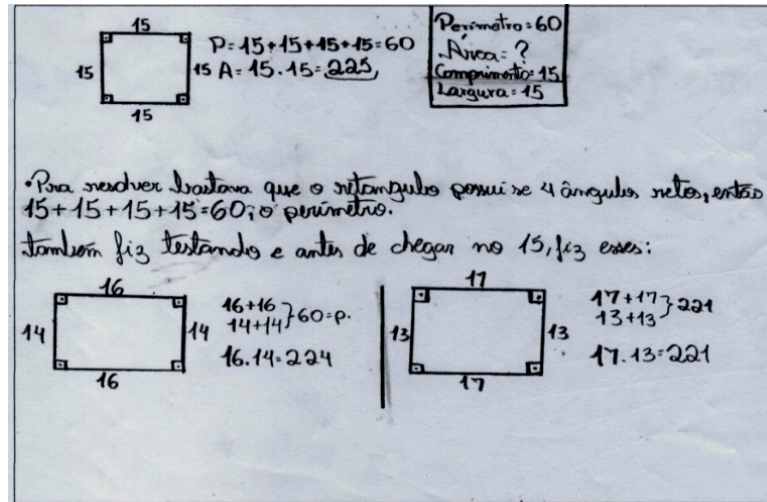 15
15
15
15
P=15+15+15+15=60
A=15.15=225
Perimetro=60
Área=?
Comprimento=15
Largura=15
•Pra resolver bastava que o retangulo possui se 4 ângulos retos, então
15+15+15+15=60; o perimetro.
também fiz testando e antes de chegar no 15, fiz esses:
16
14
14
16
16+16
14+14}60=p.
16.14=224
17
13
13
17
17+17
13+13}221
17.13=221